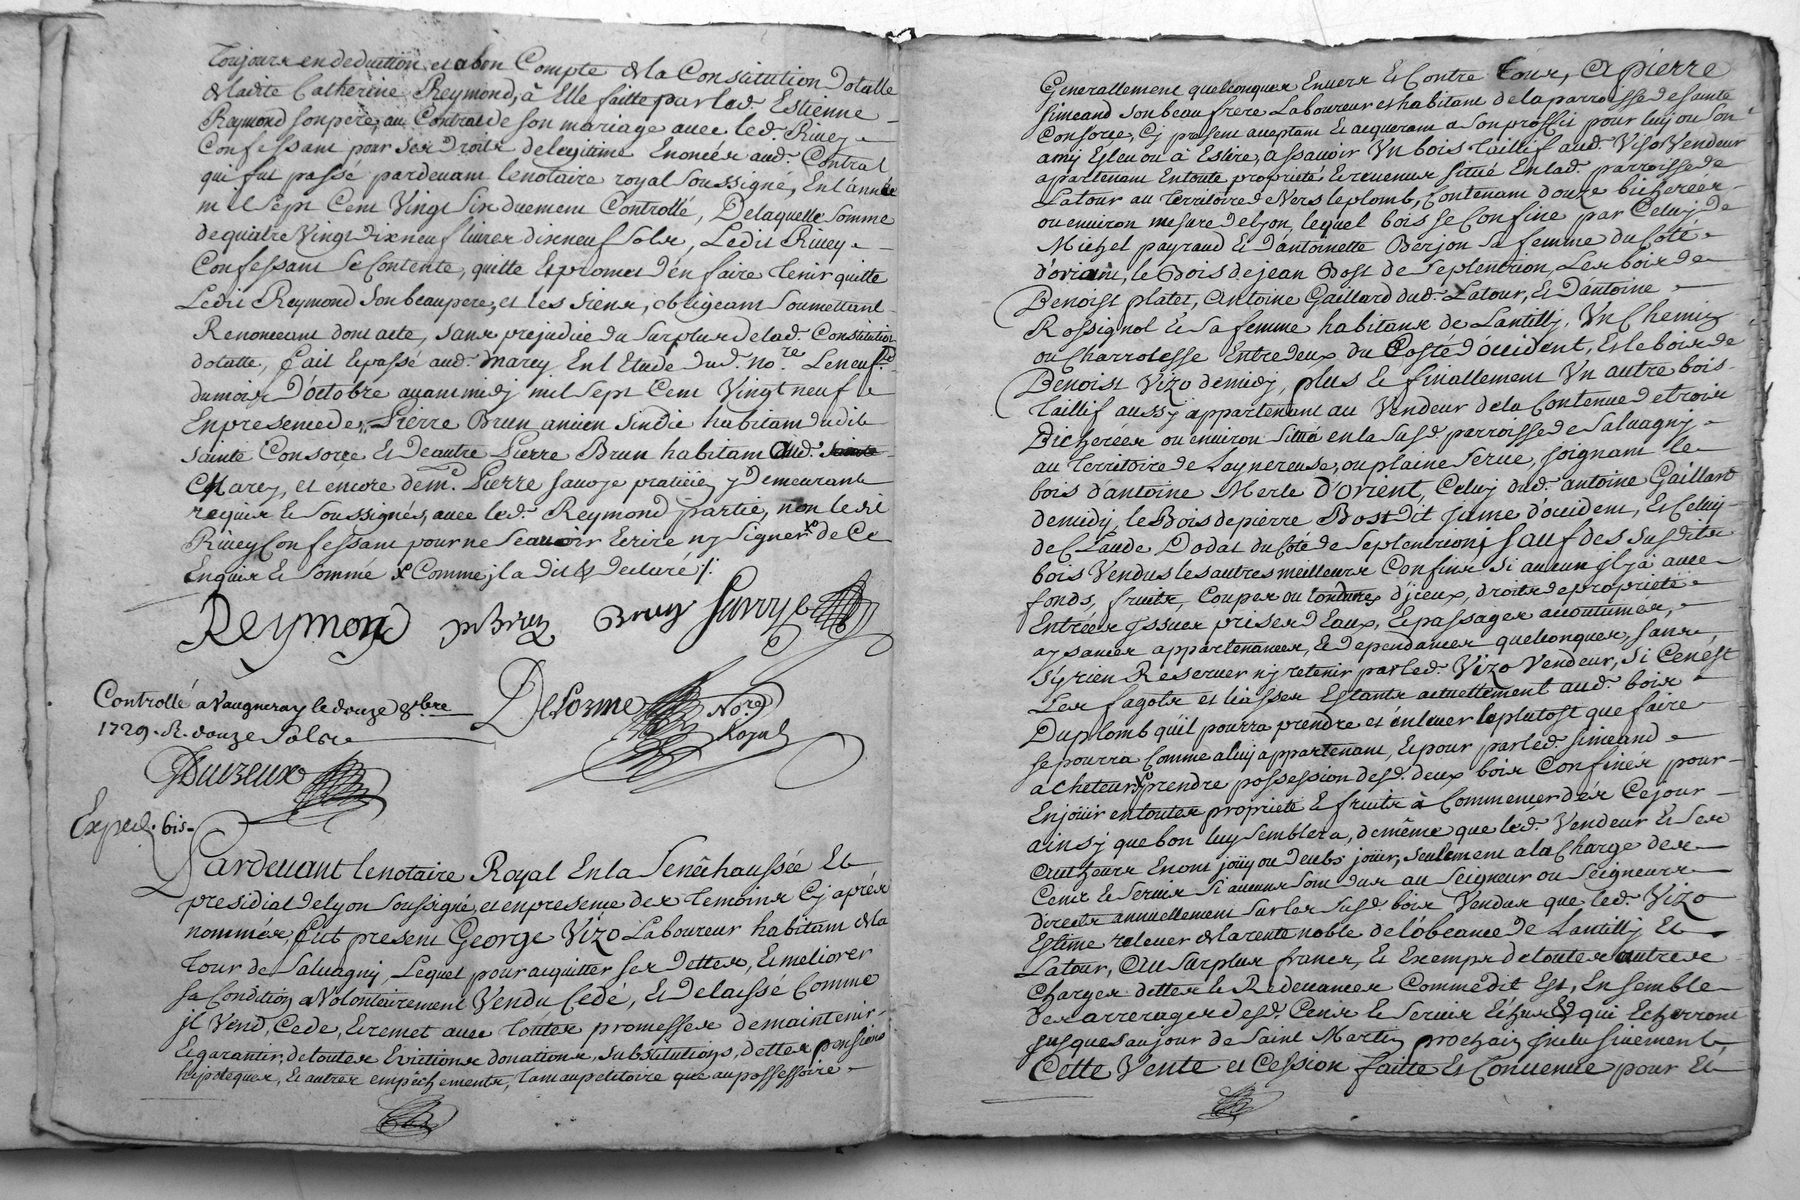 Toujours en deduction et a bon Compte de la Constitution dotalle
de ladite Catherine Reymond, à Elle faitte par led. Estienne
Reymond son pere, au Contrat de son mariage avec led. Rivey
Confessant pour ses droits de legitime Enoncés aud. Contrat
qui fut passé pardevant le notaire royal soussigné, En l'année
mil sept Cent Vingt six duement Controllé, De laquelle somme
de quatre Vingt dix neuf livres dix neuf sols, Ledit Rivey
Confessant se Contente, quitte Et promet d'en faire tenir quitte
Ledit Reymond son beaupere, et les siens, obligeant soumettant
Renonceant dont acte, sans prejudice du surplus de lad. Constitution
dotalle, fait Et passé aud. Marcy En l'Etude dud. No.re Le neuf
du mois D'octobre avant midy mil sept Cent Vingt neuf
En presence de Pierre Brun ancien sindic habitant dudit
sainte Consorce Et de autre Pierre Brun habitant aud.
Marcy, et encore de m. Pierre savoye praticien y demeurant
requis Et soussignés, avec led. Reymond partie, non ledit
Rivey Confessant pour ne sçauoir Ecrire ny signer de Ce
Enquis Et sommé Comme jl a dit & declaré /.
Reymond P Brun Brun Savoye
Delorme No.re Royal
Controllé a Vaugneray le douze 8bre
1729. R. douze sols
Duizeux
Exped. bis
Pardevant le notaire Royal En la Senêchaussée Et
presidial de lyon soussigné, et en presence des temoins Cy aprés
nommés, fut present George Vizo Laboureur habitant de la
tour de Salvagny, Lequel pour acquitter ses dettes, Et meliorer
sa Condition a Volontairement Vendu Cedé, Et Delaissé Comme
jl Vend, Cede, Et remet avec toutes promesses de maintenir
Et garantir, de toutes Evictions donations, substitutions, dettes pensions
hipoteques, Et autres empêchements, tant au petitoire que au possessoire
Generallement quelconques Envers Et Contre tous, A pierre
Simeand son beau frere Laboureur et habitant de la parroisse de sainte
Consorce, Cy present acceptant Et acquerant a son proffit pour luy ou son
amy Esleu ou à Eslire, a sçavoir Un bois taillif aud. Vizo Vendeur
appartenant En toute proprieté Et revenus situé En lad. parroisse de
Latour au Territoire de Vers le plomb, Contenant douze bicherées
ou environ mesure de lyon, lequel bois se Confine par Celuy de
Michel payraud Et D'antoinette Berjon sa femme du Coté
d'oriant, le Bois de jean Bost de septentrion, Les bois de
Benoist platet, Antoine Gaillard dud. Latour, Et D'antoine
Rossignol Et sa femme habitans de Lantilly, Un Chemin
ou Charrotesse Entredeux du Costé d'occident, Et le bois de
Benoist Vizo de midy, plus Et finallement Un autre bois
taillif aussy appartenant au Vendeur de la Contenue de trois
Bicherées ou environ situé en la susd. parroisse de Salvagny
au Territoire de Laynereuse, ou plaine serve, joignant le
bois d'antoine Merle D'orient, Celuy dud. antoine Gaillard
de midy, le Bois de pierre Bost dit jame d'occident, Et Celuy
de Claude Dodat du Coté de septentrion, sauf des susdits
bois Vendus les autres meilleurs Confins si aucun jl y à avec
fonds, fruits, Coupes ou tondures d'jceux, droits de proprieté
Entrées jssues prises d'Eaux, Et passages accoutumés,
aysances appartenances, Et dependances quelconques, sans
s'y rien Reserver ny retenir par led. Vizo Vendeur, si Ce n'est
Les fagots et liasses Estants actuellement aud. bois
Du plomb qu'il pourra prendre et enlever le plutost que faire
se pourra Comme a luy appartenant, Et pour par led. simeand
acheteur prendre possession desd. deux bois Confinés pour
En joüir en toutes proprieté Et fruits à Commencer dés Ce jour
ainsy que bon luy semblera, de même que led. Vendeur Et ses
Autheurs En ont joüy ou deubs joüir, seulement a la Charge des
Cens Et servis si aucuns sont dus au seigneur ou seigneurs
directs annuellement sur les susd. bois Vendus que led. Vizo
Estime relever de la rente noble de l'obeance de Lantilly Et
Latour, Au surplus francs, Et Exempts de toutes autres
Charges dettes Et Redevances Comme dit Est, Ensemble
des arrerages desd. Cens Et servis Echus Et qui Echerront
jusques au jour de Saint Martin prochain jnclusivement
Cette Vente et Cession faitte Et Convenue pour Et